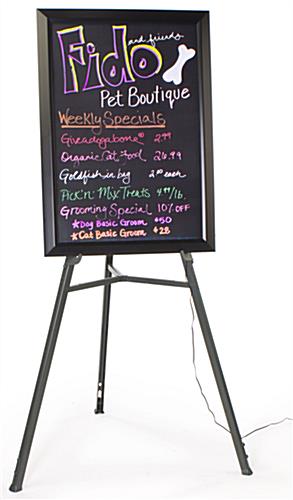 Fido and friends
Pet Boutique
Weekly Specials
Giveadogabone® 2.99
Organic Cat Food 26.99
Goldfish in bag 2.50 each
Pick'n' Mix Treats 4.99/lb.
Grooming Special 10% OFF
★Dog Basic Groom $50
★Cat Basic Groom $28